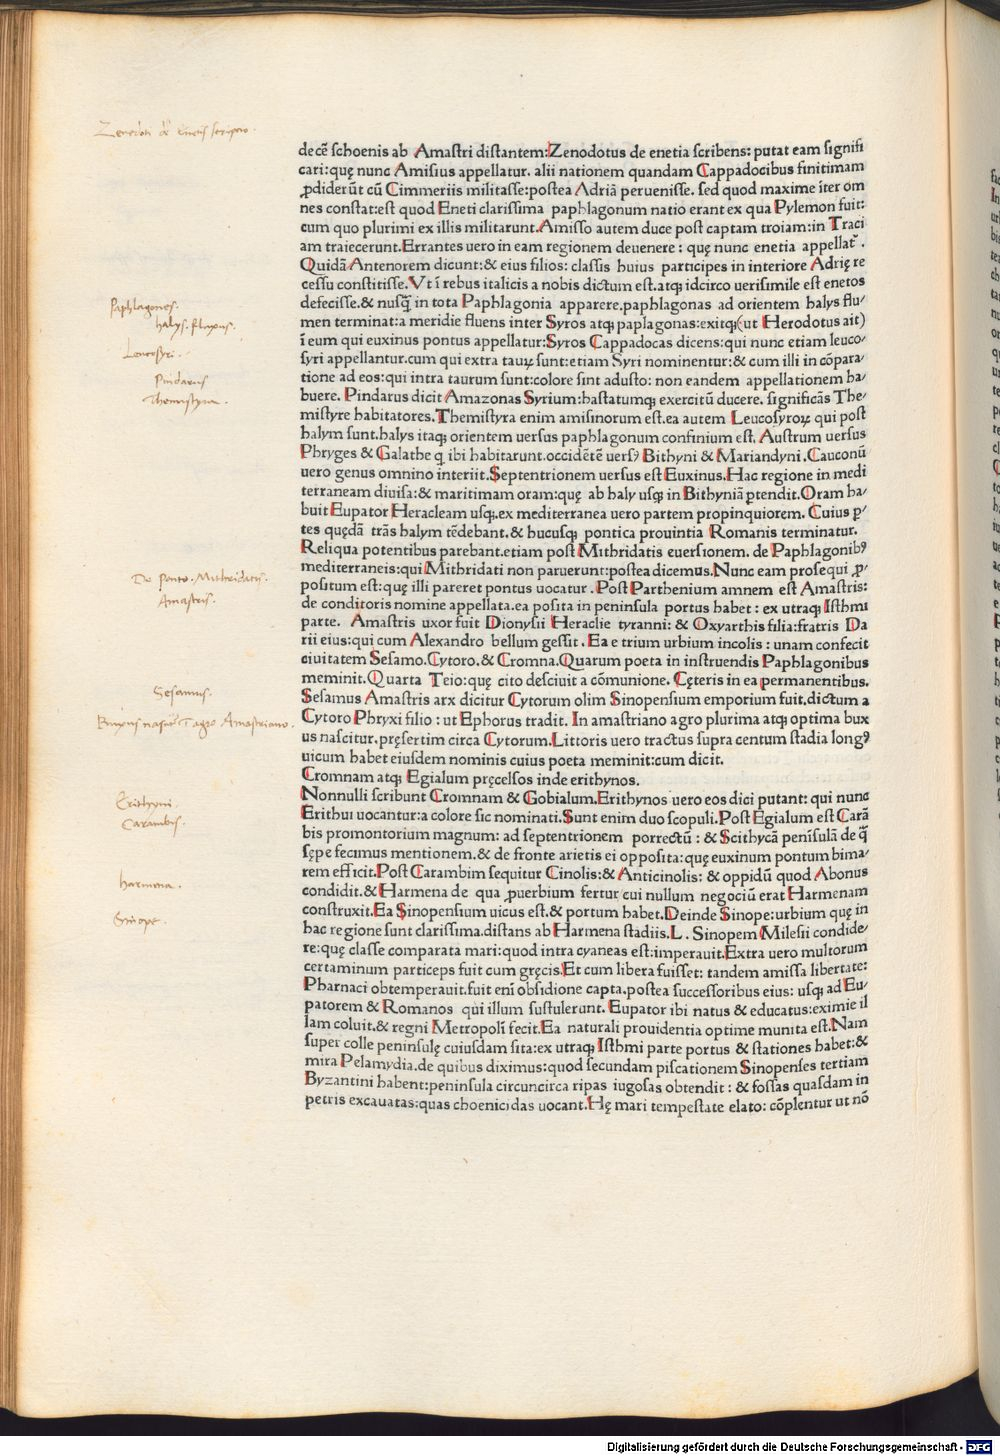 Zenodoti de Enetis scriptio.
decē schoenis ab Amastri distantem:Zenodotus de enetia scribens: putat eam signifi
cari:quę nunc Amisius appellatur. alii nationem quandam Cappadocibus finitimam
ꝓdiderūt cū Cimmeriis militasse:postea Adriā peruenisse. sed quod maxime īter om
nes constat:est quod Eneti clarissima paphlagonum natio erant ex qua Pylemon fuit:
cum quo plurimi ex illis militarunt.Amisso autem duce post captam troiam:in Traci
am traiecerunt.Errantes uero in eam regionem deuenere : quę nunc enetia appellat̃ .
Quidā Antenorem dicunt:& eius filios: classis huius participes in interiore Adrię re
cessu constitisse.Vt ī rebus italicis a nobis dictum est.atqꝫ idcirco uerisimile est enetos
defecisse.& nusq̃ in tota Paphlagonia apparere.paphlagonas ad orientem halys flu/
Paphlagones.
men terminat:a meridie fluens inter Syros atqꝫ paplagonas:exitqꝫ(ut Herodotus ait)
halys.fluuius.
ī eum qui euxinus pontus appellatur:Syros Cappadocas dicens:qui nunc etiam leuco/
Leucosyri.
syri appellantur.cum qui extra tauꝝ sunt:etiam Syri nominentur:& cum illi in cōpara/
tione ad eos:qui intra taurum sunt:colore sint adusto: non eandem appellationem ha/
Pindarus
buere. Pindarus dicit Amazonas Syrium:hastatumqꝫ exercitū ducere. significās The/
Themistyra.
mistyre habitatores.Themistyra enim amisinorum est.ea autem Leucosyroꝝ qui post
halym sunt.halys itaqꝫ orientem uersus paphlagonum confinium est. Austrum uersus
Phryges & Galathe q ibi habitarunt.occidētē uersꝰ Bithyni & Mariandyni.Cauconū
uero genus omnino interiit.Septentrionem uersus est Euxinus.Hac regione in medi
terraneam diuisa:& maritimam oram:quę ab haly usqꝫ in Bithyniā ꝑtendit.Oram ha/
buit Eupator Heracleam usqꝫ.ex mediterranea uero partem propinquiorem. Cuius ꝑ/
tes quędā trās halym tēdebant.& hucusqꝫ pontica prouintia Romanis terminatur.
Reliqua potentibus parebant.etiam post Mithridatis euersionem. de Paphlagonibꝰ
mediterraneis:qui Mithridati non paruerunt:postea dicemus.Nunc eam prosequi ꝓ/
De Ponto.Mithridatis.
positum est:quę illi pareret pontus uocatur . Post Parthenium amnem est Amastris:
Amastris.
de conditoris nomine appellata.ea posita in peninsula portus habet : ex utraqꝫ Isthmi
parte. Amastris uxor fuit Dionysii Heraclie tyranni: & Oxyarthis filia:fratris Da
rii eius:qui cum Alexandro bellum gessit . Ea e trium urbium incolis : unam confecit
ciuitatem Sesamo.Cytoro.& Cromna.Quarum poeta in instruendis Paphlagonibus
meminit. Quarta Teio:quę cito desciuit a cōmunione. Cęteris in ea permanentibus.
Sesamus.
Sesamus Amastris arx dicitur Cytorum olim Sinopensium emporium fuit.dictum a
Cytoro Phryxi filio : ut Ephorus tradit. In amastriano agro plurima atqꝫ optima bux
Buxus nascit̃ ī agro Amastriano.
us nascitur.pręsertim circa Cytorum.Littoris uero tractus supra centum stadia longꝰ
uicum habet eiusdem nominis cuius poeta meminit:cum dicit.
Cromnam atqꝫ Egialum pręcelsos inde erithynos.
Nonnulli scribunt Cromnam & Gobialum.Erithynos uero eos dici putant: qui nunc
Erithyni.
Erithui uocantur:a colore sic nominati.Sunt enim duo scopuli.Post Egialum est Carā
Carambis.
bis promontorium magnum: ad septentrionem porrectū : & Scithycā penīsulā de q̃
sępe fecimus mentionem.& de fronte arietis ei opposita:quę euxinum pontum bima/
rem efficit.Post Carambim sequitur Cinolis:& Anticinolis: & oppidū quod Abonus
Harmena.
condidit.& Harmena de qua ꝓuerbium fertur cui nullum negociū erat Harmenam
construxit.Ea Sinopensium uicus est.& portum habet.Deinde Sinope:urbium quę in
Sinope.
hac regione sunt clarissima.distans ab Harmena stadiis.L. Sinopem Milesii condide/
re:quę classe comparata mari:quod intra cyaneas est:imperauit.Extra uero multorum
certaminum particeps fuit cum gręcis.Et cum libera fuisset: tandem amissa libertate:
Pharnaci obtemperauit.fuit enī obsidione capta.postea successoribus eius: usqꝫ ad Eu/
patorem & Romanos qui illum sustulerunt. Eupator ibi natus & educatus:eximie il
lam coluit.& regni Metropolī fecit.Ea naturali prouidentia optime munita est.Nam
super colle peninsulę cuiusdam sita:ex utraqꝫ Isthmi parte portus & stationes habet:&
mira Pelamydia.de quibus diximus:quod secundam piscationem Sinopenses tertiam
Byzantini habent:peninsula circuncirca ripas iugosas obtendit : & fossas quasdam in
petris excauatas:quas choenicidas uocant.Hę mari tempestate elato: cōplentur ut nō
Digitalisierung gefördert durch die Deutsche Forschungsgemeinschaft - DFG